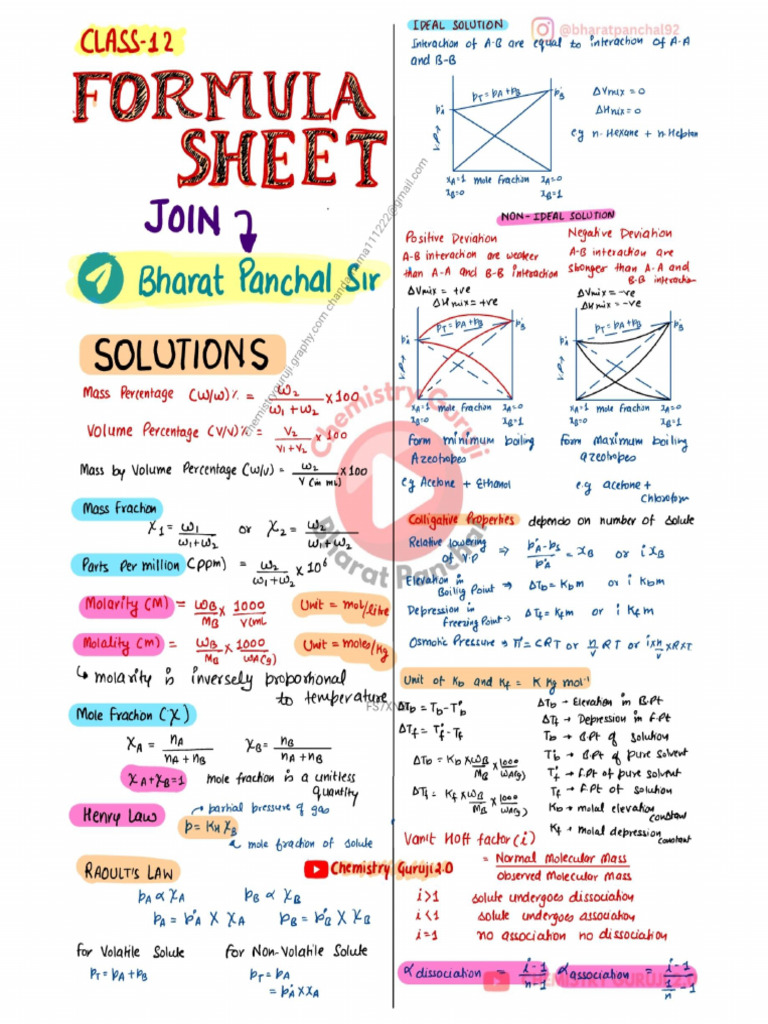 CLASS-12
FORMULA
SHEET
JOIN
Bharat Panchal Sir
SOLUTIONS
Mass Percentage (W/W)% = ω₂/(ω₁+ω₂) × 100
Volume Percentage (V/V)% = V₂/(V₁+V₂) × 100
Mass by Volume Percentage (W/V) = ω₂/V(in mL) × 100
Mass Fraction
χ₁ = ω₁/(ω₁+ω₂) or χ₂ = ω₂/(ω₁+ω₂)
Parts Per million (ppm) = ω₂/(ω₁+ω₂) × 10⁶
Molarity (M) = ωB/MB × 1000/V(mL Unit = mol/litre
Molality (m) = ωB/MB × 1000/ωA(g) Unit = moles/kg
↳ molarity is inversely proportional
to temperature
Mole Fraction (χ)
χA = nA/(nA+nB) χB = nB/(nA+nB)
χA+χB=1 mole fraction is a unitless
quantity
Henry Law → partial pressure of gas
p = KH χB
mole fraction of solute
RAOULT'S LAW
Chemistry Guruji 2.0
pA ∝ χA pB ∝ χB
pA = p°A × χA pB = p°B × χB
for Volatile Solute for Non-Volatile Solute
pT = pA+pB pT = pA
= p°A × χA
IDEAL SOLUTION @bharatpanchal92
Interaction of A-B are equal to interaction of A-A
and B-B
pT = pA+pB
p°A
p°B
V.P→
ΔVmix = 0
ΔHmix = 0
eg n-Hexane + n-Hepten
χA=1 mole fraction χA=0
χB=0 χB=1
NON-IDEAL SOLUTION
Positive Deviation
A-B interaction are weaker
than A-A and B-B interaction
ΔVmix = +ve
ΔHmix = +ve
pT = pA+pB
p°A
p°B
V.P→
χA=1 mole fraction χA=0
χB=0 χB=1
form minimum boiling
Azeotropes
eg Acetone + Ethanol
Negative Deviation
A-B interaction are
stronger than A-A and
B-B interaction
ΔVmix = -ve
ΔHmix = -ve
pT = pA+pB
p°A
p°B
V.P→
χA=1 mole fraction χA=0
χB=0 χB=1
form maximum boiling
azeotropes
e.g acetone +
chloroform
Colligative Properties depends on number of solute
Relative lowering
of V.P ⇒ (p°A-ps)/p°A = χB or i χB
Elevation in
Boiling Point → ΔTb = Kbm or i Kbm
Depression in
freezing Point → ΔTf = Kfm or i Kfm
Osmotic Pressure → π = CRT or n/V RT or i×n/V × R×T
Unit of Kb and Kf = K Kg mol⁻¹
ΔTb = Tb - T°b
ΔTf = T°f - Tf
ΔTb = Kb × ωB/MB × 1000/ωA(g)
ΔTf = Kf × ωB/MB × 1000/ωA(g)
ΔTb → Elevation in B.Pt
ΔTf → Depression in F.Pt
Tb → B.Pt of solution
T°b → B.Pt of pure solvent
T°f → F.Pt of pure solvent
Tf → F.Pt of solution
Kb → molal elevation
constant
Kf → molal depression
constant
Vant Hoff factor (i)
= Normal Molecular Mass/observed Molecular Mass
i>1 solute undergoes dissociation
i<1 solute undergoes association
i=1 no association no dissociation
α dissociation = (i-1)/(n-1) α association = (i-1)/(1/n - 1)
Chemistry Guruji
Bharat Panchal
CHEMISTRY GURUJI 2.0